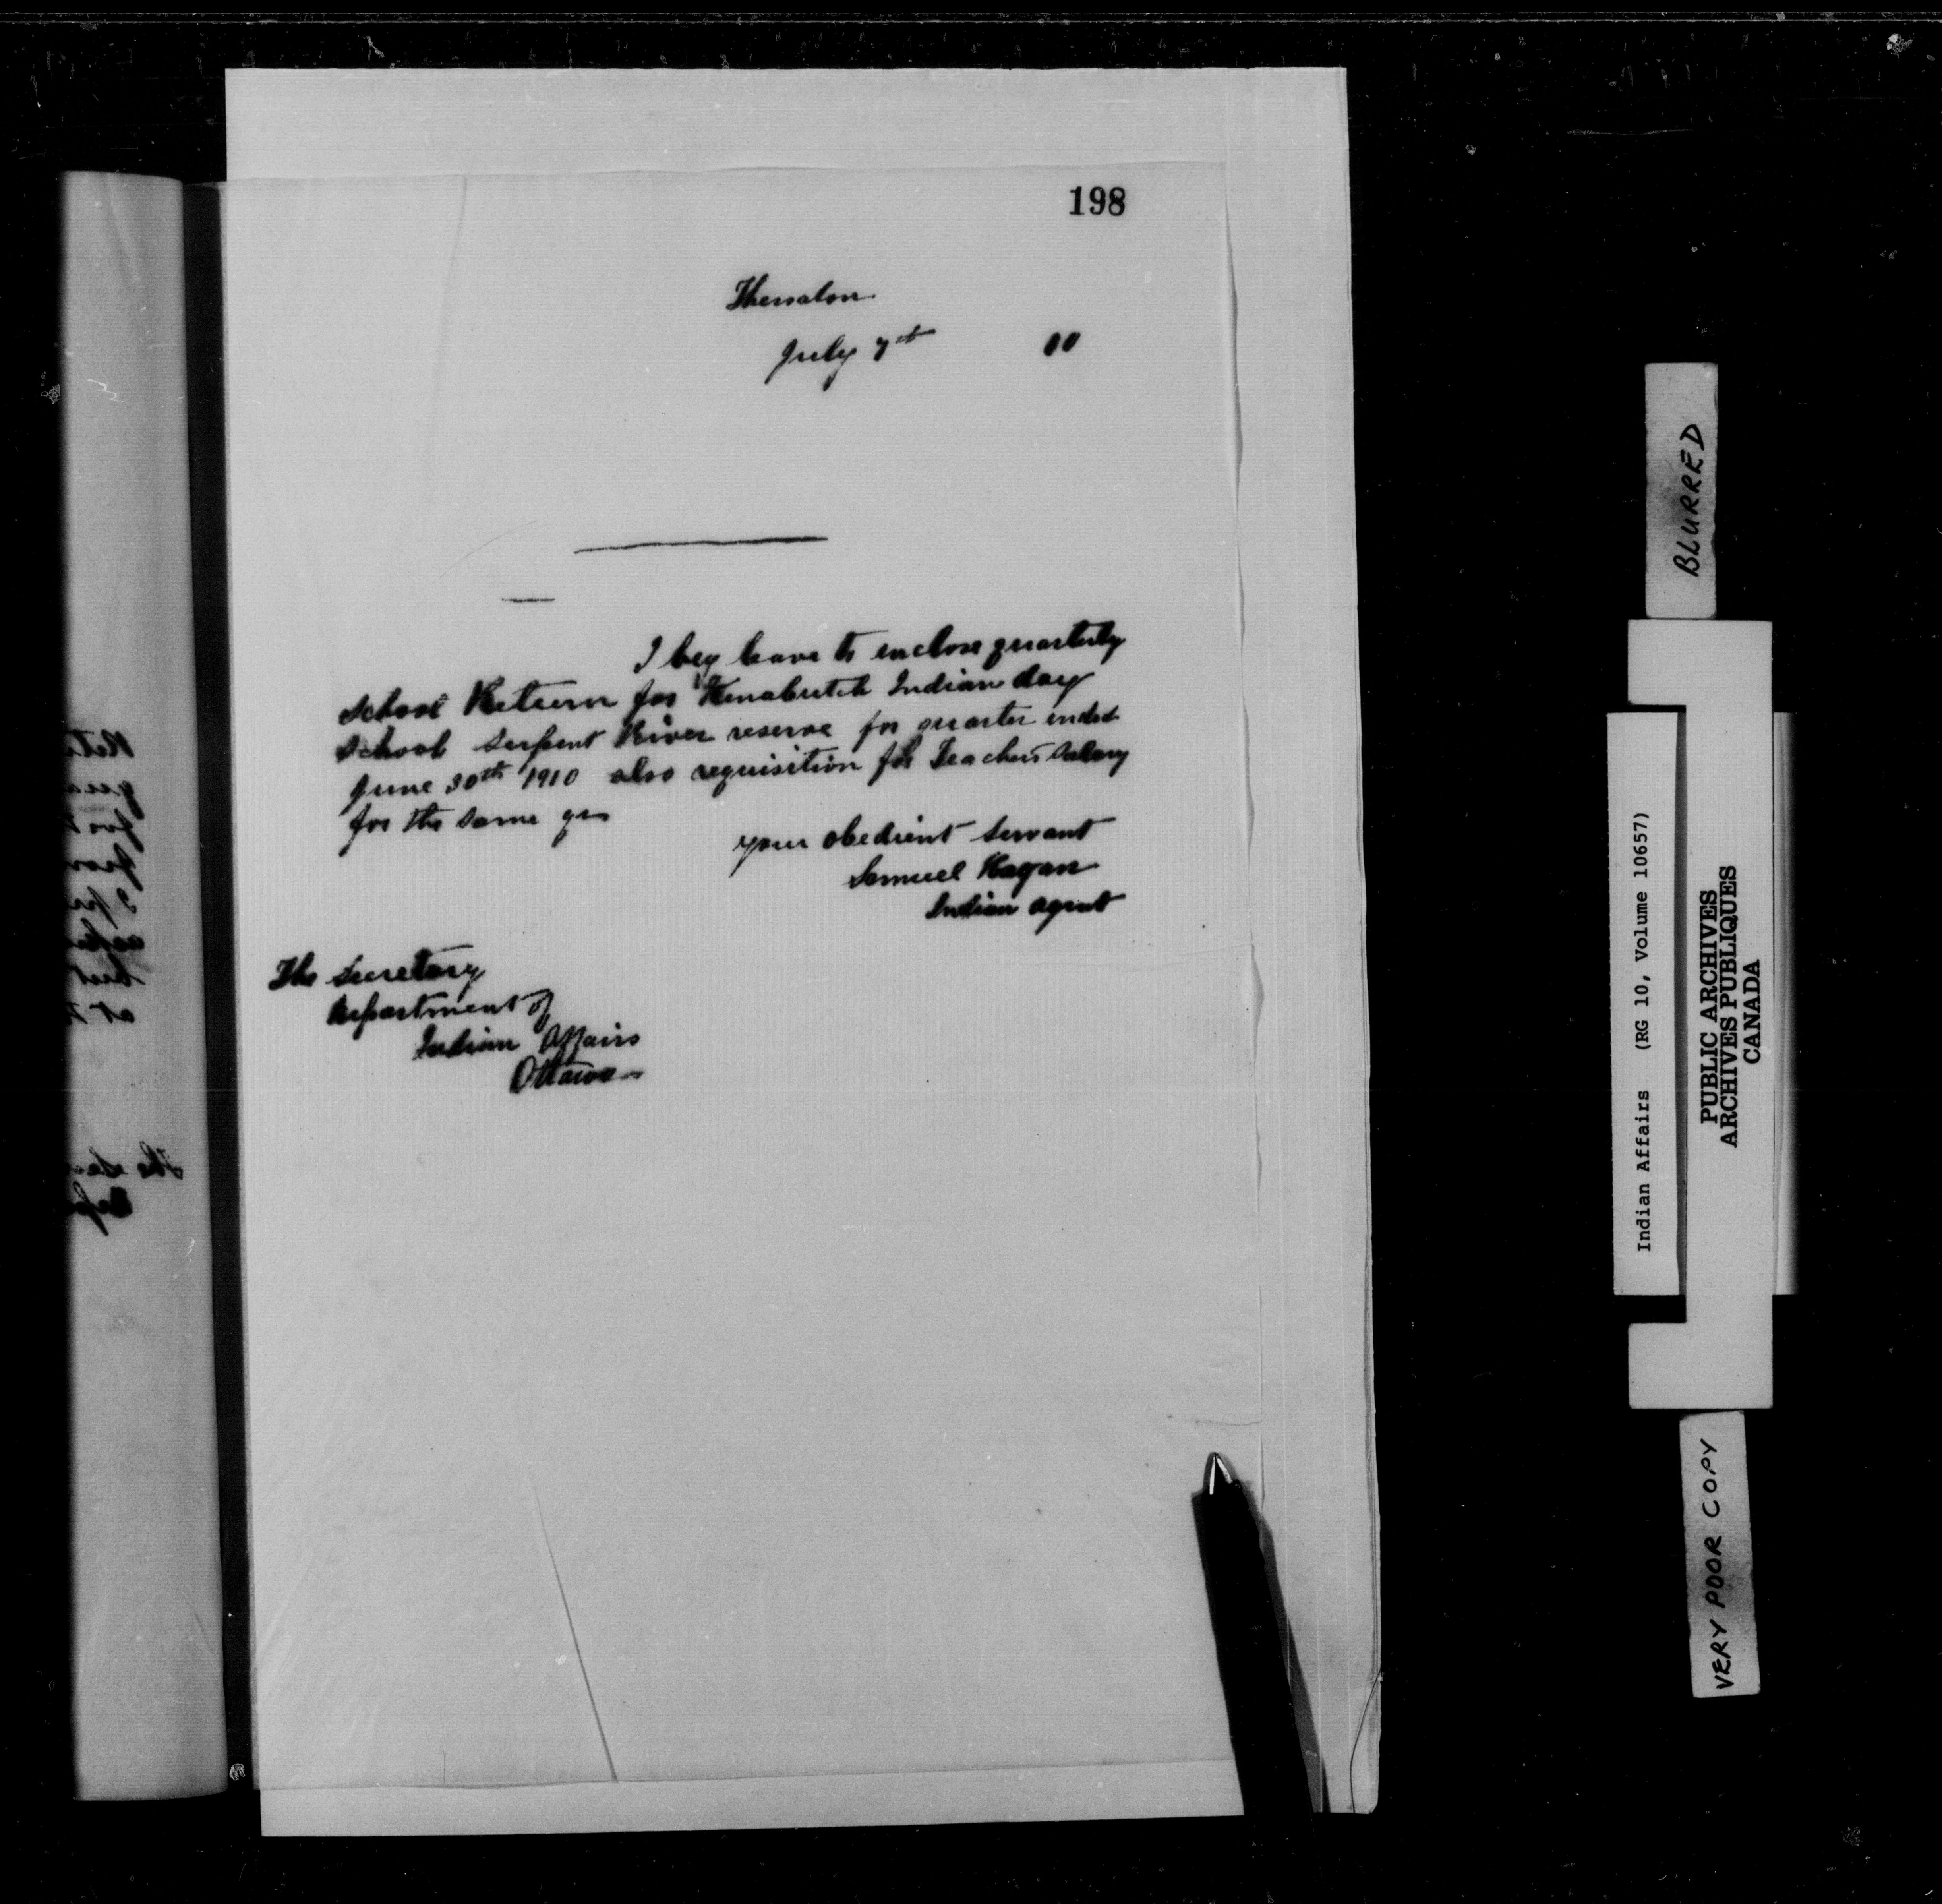 198
Thessalon
July 7th 10
I beg leave to enclose quarterly
School Return for Kenabutch Indian day
School Serpent River reserve for quarter ended
June 30th 1910 also requisition for Teachers Salary
for the same qr
your obedient servant
Samuel Hagan
Indian agent
The Secretary
Department of
Indian Affairs
Ottawa
BLURRED
Indian Affairs (RG 10, Volume 10657)
PUBLIC ARCHIVES
ARCHIVES PUBLIQUES
CANADA
VERY POOR COPY